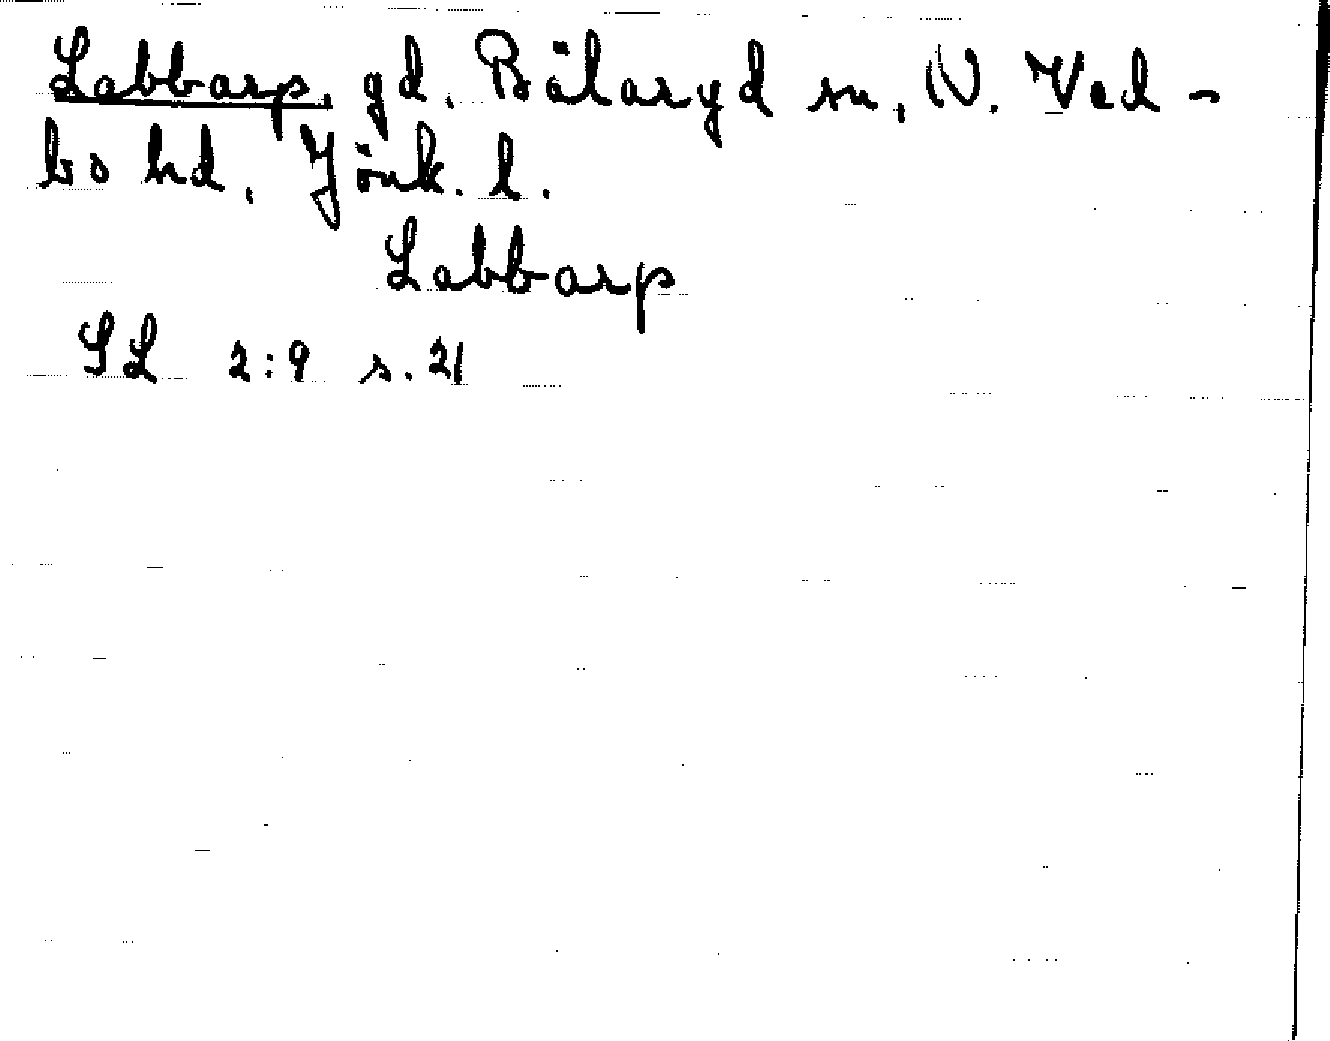 Labbarp, gd, Bälaryd sn, N. Ved-
bo hd, Jönk. l.
Labbarp
SL 2:9 s. 21